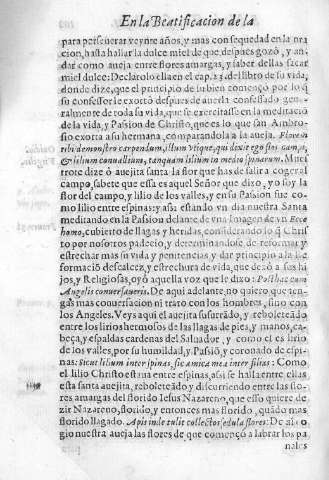 En la Beatificacion de la
para perseuerar veynte años, y mas con sequedad en la ora
cion, hasta hallar la dulce miel de que despues gozó, y an-
dar como aueja entre flores amargas, y saber dellas sacar
miel dulce: Declarolo ella en el cap. 23. del libro de su vida,
donde dize, que el principio de su bien començo por lo q̃
su confessor le exortò despues de auerla confessado gene-
ralmente de toda su vida, que se exercitasse en la meditacio
de la vida, y Pasion de Christo, que es lo que san Ambro-
sio exorta a su hermana, comparandola a la aueja. Florem
tibi demonstro carpendum, illum vtique, qui dixit ego flos campi,
& lilium conuallium, tanquam lilium in medio spinarum. Mues
trote dize ò auejita santa la flor que has de salir a coger al
campo, sabete que essa es aquel Señor que dixo, yo soy la
flor del campo, y lilio de los valles, y en su Pasion fue co-
mo lilio entre espinas: y assi estando vn dia nuestra Santa
meditando en la Pasion delante de vna Imagen de vn Ecce
homo, cubierto de llagas y heridas, considerando lo q̃ Chris
to por nosotros padecio, y determinandose de reformar y
estrechar mas su vida y penitencias, y dar principio a la re-
formació descalcez, y estrechura de vida, que dexó a sus hi-
jos, y Religiosas, oyó aquella voz que le dixo: Posthac cum
Angelis conuersaueris. De aqui adelante no quiero que ten-
gas mas conuersacion ni trato con los hombres, sino con
los Angeles. Veys aqui el auejita susurrãdo, y reboleteãdo
entre los lirios hermosos de las llagas de pies, y manos, ca-
beça, y espaldas cardenas del Saluador, y como el es lirio
de los valles, por su humildad, y Pasiõ, y coronado de espi-
nas: Sicut lilium inter spinas, sic amica mea inter filias: Como
el lilio Christo estaua entre espinas, assi se halla entre ellas
esta santa auejita, reboleteãdo y discurriendo entre las flo-
res amargas del florido Iesus Nazareno, que esso quiere de
zir Nazareno, florido, y entonces mas florido, quãdo mas
florido llagado. Apis inde tulit collectos sedula flores: De al
gio nuestra aueja las flores de que començò a labrar los pa
nales